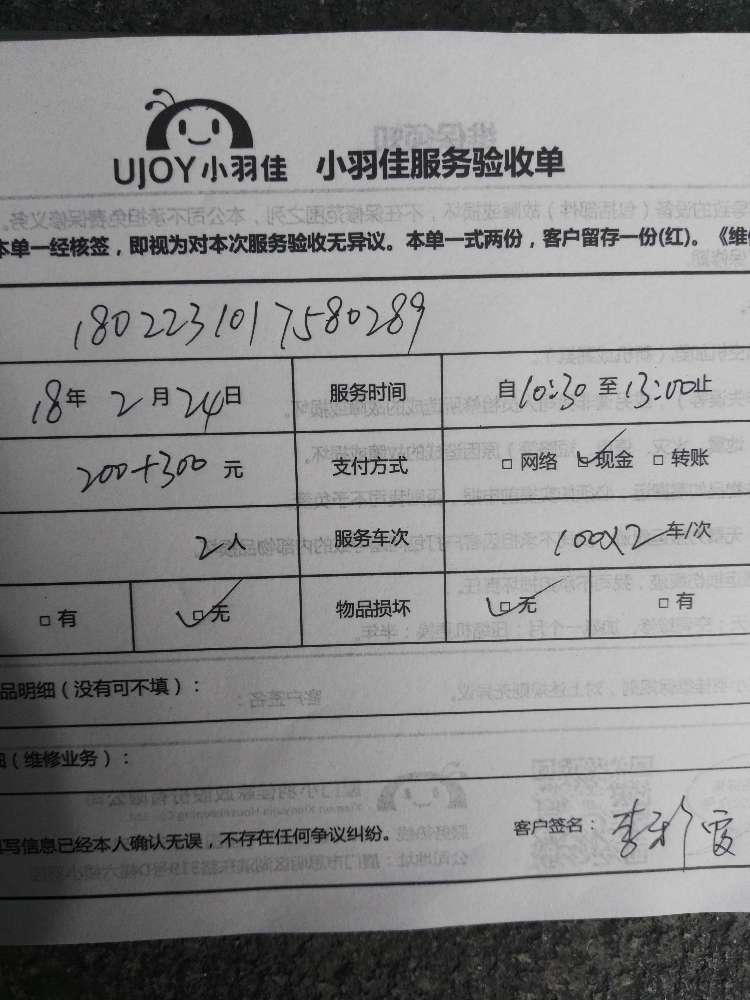 UJOY小羽佳 小羽佳服务验收单
本单一经核签，即视为对本次服务验收无异议。本单一式两份，客户留存一份(红)。《维
1802231017580289
18年 2月24日 服务时间 自10:30至13:00止
200+300元 支付方式 网络 现金 转账
2人 服务车次 100×2车/次
有 无 物品损坏 无 有
品明细（没有可不填）：
（维修业务）：
写信息已经本人确认无误，不存在任何争议纠纷。 客户签名：李彩霞